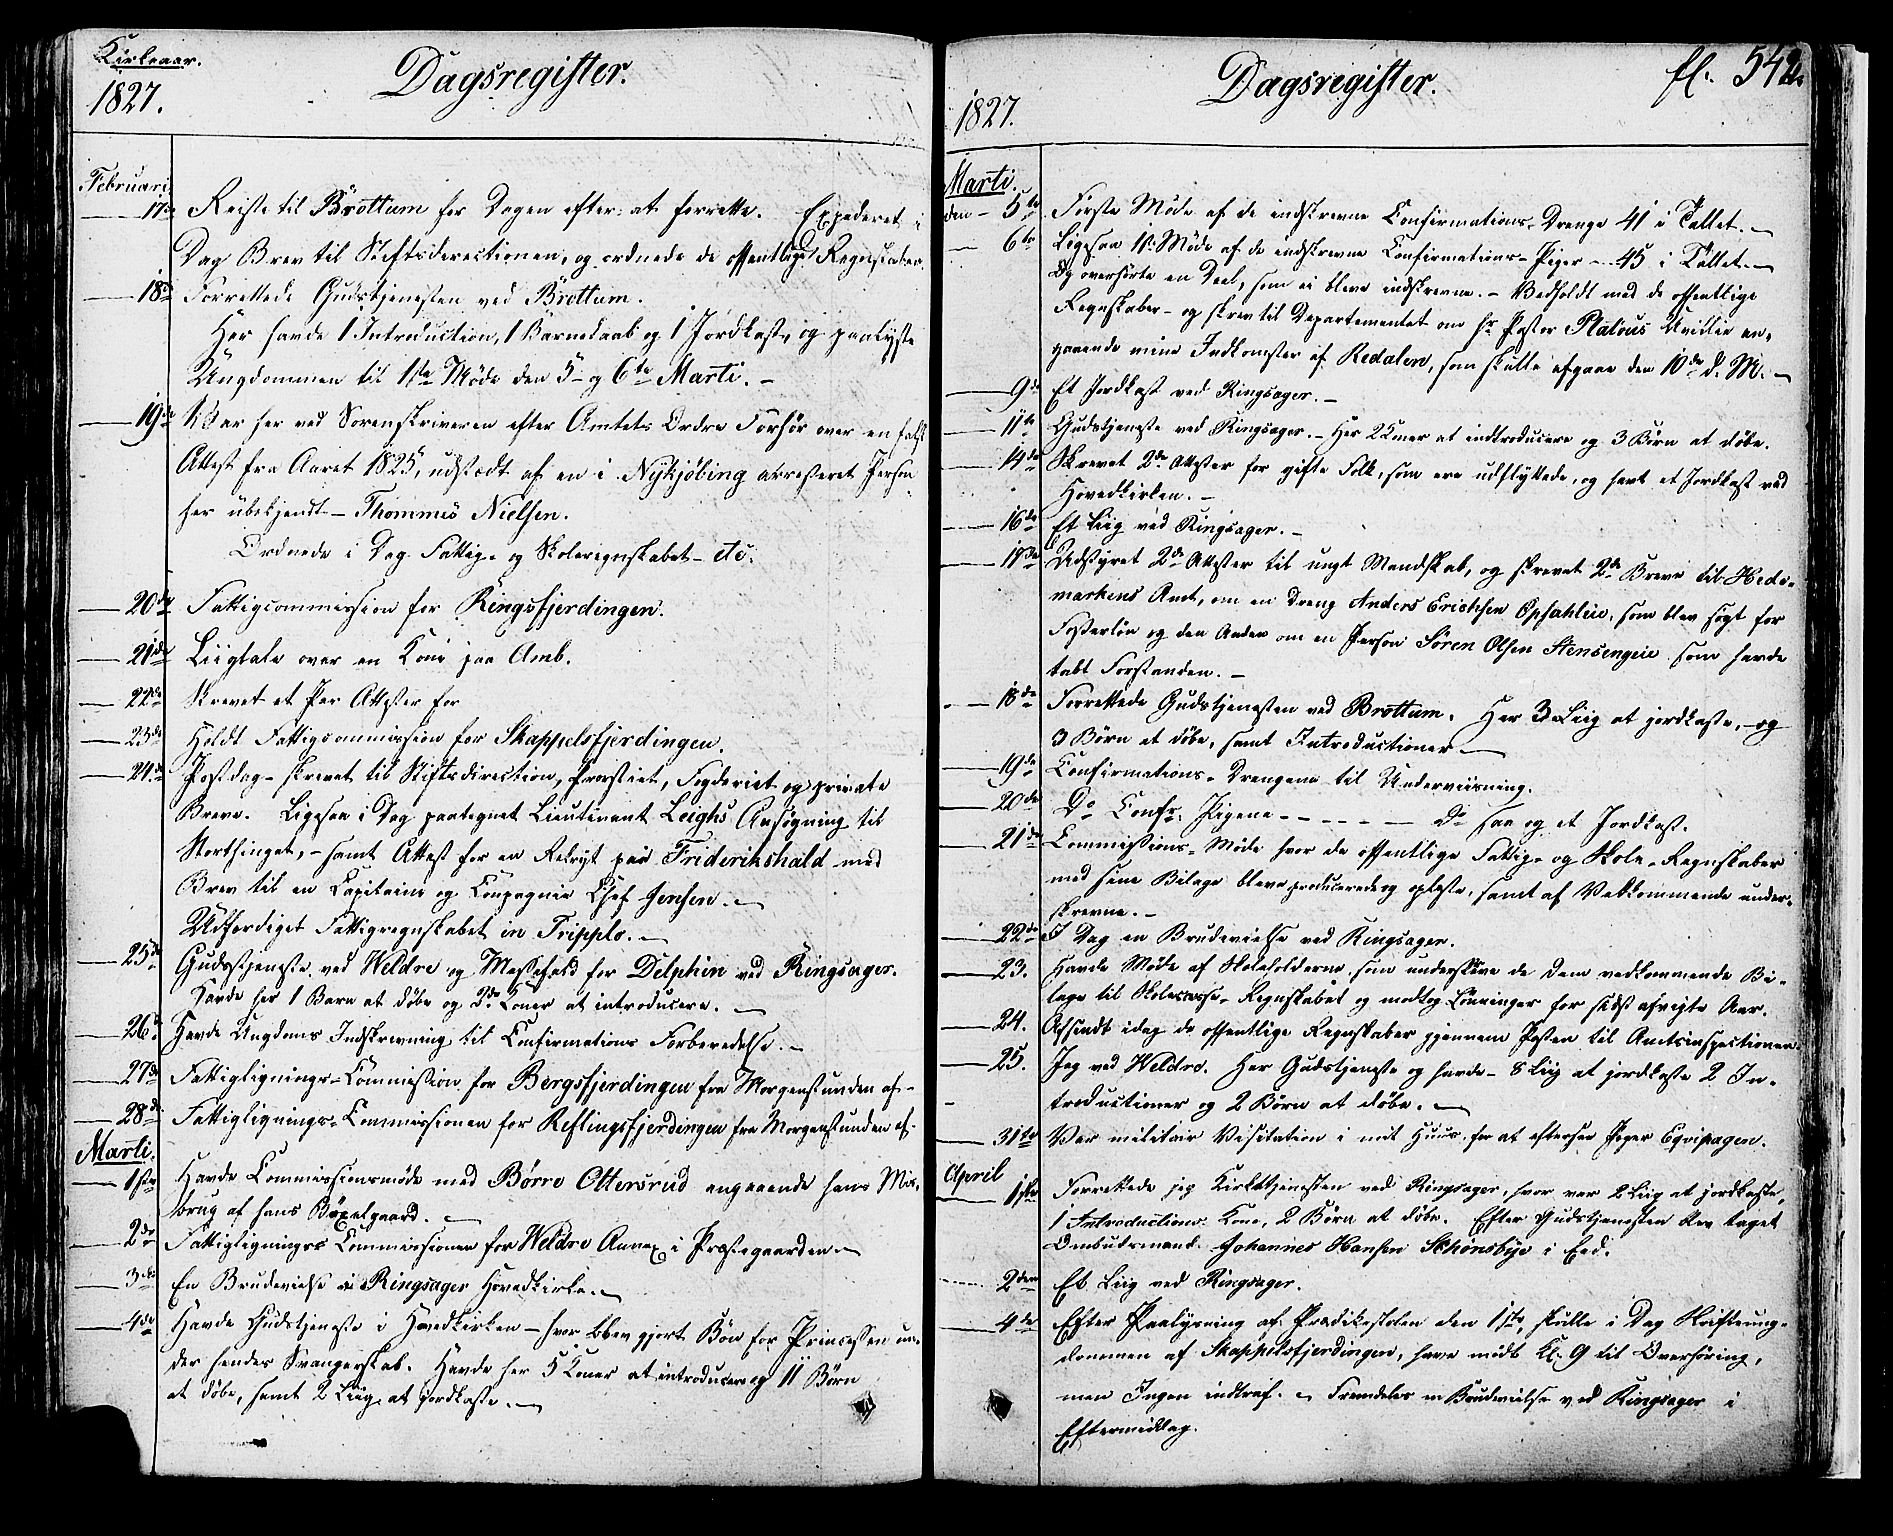 Kirkeaar.
1827.
Dagsregister.
Februari
17de Reiste til Brøttum for Dagen efter at forrette. Expederet i
Dag Brev til Stiftsdirectionen, og ordnede de offentlige Regnskaber.
18de Forrettede Gudstjenesten ved Brøttum.
Her havde 1 Introduction, 1 Barnedaab og 1 Jordkast, og paalyste
Ungdommen til 1ste Møde den 5 og 6te Marti. –
19de War her ved Sorenskriveren efter Amtets Ordre Forhør over en falsk
Attest fra Aaret 1825, udstædt af en i Nykjöbing arresteret Person
her ubekjendt – Thommes Nielsen.
Ordnede i Dag Fattig- og Skoleregnskabet – etc.
20de Fattigcommission for Ringsfjerdingen.
21de Liigtale over en Kone paa Amb.
22de Skrevet et Par Attester for
23de Holdt Fattigcommission for Skappelsfjerdingen.
24de Postdag – skrevet til Stiftsdirection, Provstiet, Fogderiet og private
Breve. Ligesaa i Dag paategnet Lieutenant Leighs Ansøgning til
Storthinget, – samt Attest for en Rekryt paa Friderikshald med
Brev til en Capitaine og Compagnie Chef Jensen. –
Udfærdiget Fattigregnskabet in Tripplo. –
25de Gudstjeneste ved Weldre og Messefald for Delphin ved Ringsager.
Havde her 1 Barn at døbe og 2de Koner at introducere. –
26de Havde Ungdoms Indskrivning til Confirmations Forberedelse. –
27de Fattiglignings-Commission for Bergsfjerdingen fra Morgenstunden af –
28de Fattiglignings-Commissionen for Reflingsfjerdingen fra Morgenstunden af.
Marti.
1ste Havde Commissionsmøde med Børre Ottersrud angaaende hans Mis-
brug af hans Bøxelgaard. –
2den Fattiglignings Commissionen for Weldre Annex i Præstegaarden –
3die En Brudevielse i Ringsager Hovedkirke. –
4de Havde Gudstjeneste i Hovedkirken – hvor blev gjort Bön for Princessen un-
der hendes Svangerskab. Havde her 5 Koner at introducere og 11 Børn
at døbe, samt 2 Liig at jordkaste. –
1827.
Dagsregister.
fl. 542.
Marti.
den 5te Første Møde af de indskrevne Confirmations-Drenge 41 i Tallet. –
6te Ligesaa 1ste Møde af de indskrevne Confirmations-Piger – 45 i Tallet. –
Og overhørte en Deel, som ei bleve indskrevne. – Vedholdt med de offentlige
Regnskaber – og skrev til Departementet om Hr Pastor Platous Uvillie an-
gaaende mine Indkomster af Redalen, som skulle afgaae den 10de d. M. –
9de Et Jordkast ved Ringsager. –
11te Gudstjeneste ved Ringsager. – Her 2 Koner at indtroducere og 3 Börn at døbe.
14de Skrevet 2de Attester for gifte Folk, som ere udflyttede, og havt et Jordkast ved
Hovedkirken. –
16de Et Liig ved Ringsager. –
17de Udstyret 2de Attester til ungt Mandskab, og skrevet 2de Breve til Hede-
markens Amt, om en Dreng Anders Erichsen Opsahleie, som blev søgt for
Fosterløn og den Anden om en Person Søren Olsen Stensengeie som havde
tabt Forstanden. –
18de Forrettede Gudstjenesten ved Brøttum. Her 3 Liig at jordkaste, – og
3 Börn at døbe, samt Introductioner –
19de Confirmations-Drengene til Underviisning.
20de Do Confr. Pigene – – – – – – Do saa og et Jordkast.
21de Commissions-Møde hvor de offentlige Fattig- og Skole-Regnskaber
med sine Bilage bleve producerede og oplæste, samt af Vedkommende under-
skrevne. –
22de I Dag en Brudevielse ved Ringsager.
23. Havde Møde af Skoleholderne, som underskreve de dem vedkommende Bi-
lage til Skolecasse-Regnskabet og modtog Lønninger for sidst afvigte Aar.
24. Afsendt idag de offentlige Regnskaber gjennem Posten til Amtsinspectionen.
25. Jeg ved Weldre. Her Gudstjeneste og havde 8 Liig at jordkaste 2 In-
troductioner og 2 Börn at døbe. –
31te War militair Visitation i mit Huus, for at efterse Jeger Eqvipagen.
April
1ste Forrettede jeg Kirketjenesten ved Ringsager, hvor var 2 Liig at jordkaste,
1 Introductions Kone, 2 Börn at døbe. Efter Gudstjenesten blev taget
Ombudsmand Johannes Hansen Schönsbye i Eed.
2den Et Liig ved Ringsager.
4de Efter Paalysning af Prædikestolen den 1ste, skulle i Dag Skifteung-
dommen af Skappelsfjerdingen, have mødt Kl. 9 til Overhøring,
men Ingen indtraf. – Fremdeles en Brudevielse ved Ringsager i
Eftermiddag.